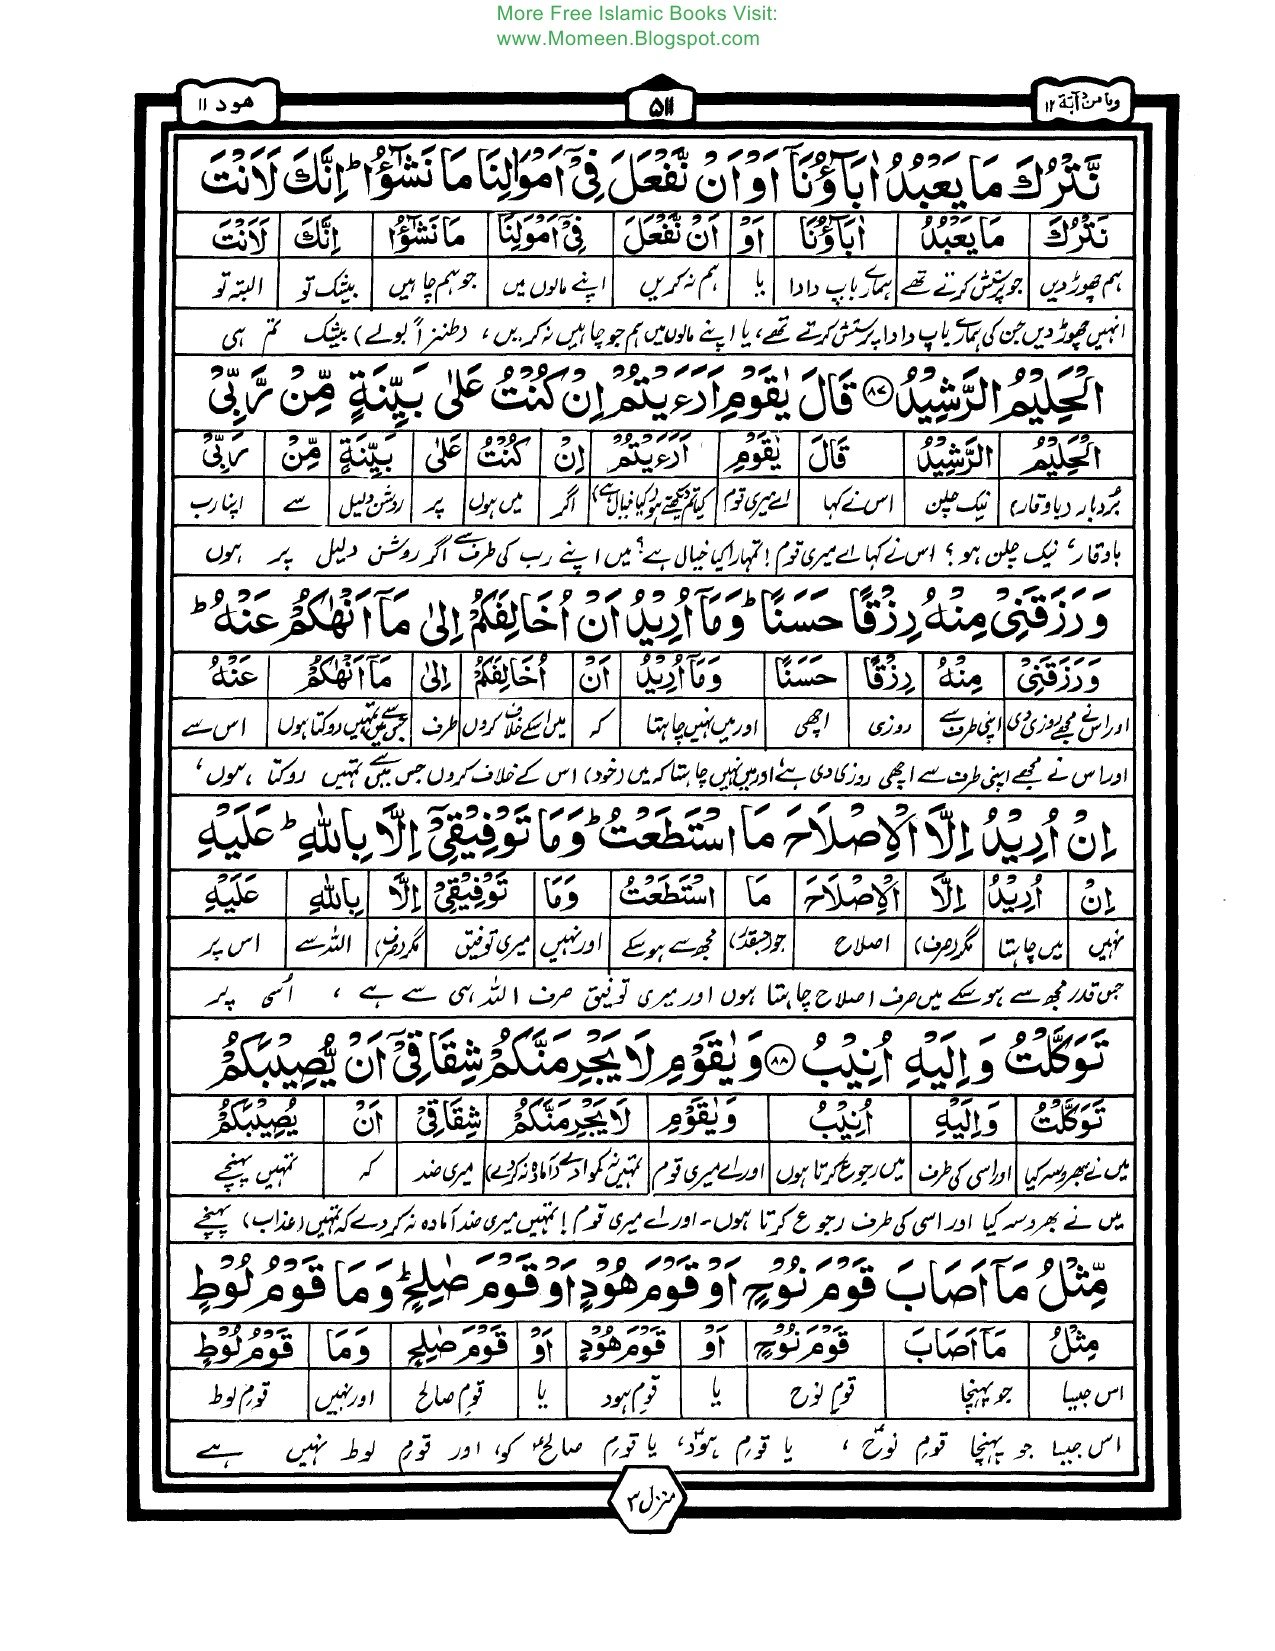 More Free Islamic Books Visit:
www.Momeen.Blogspot.com
وما من دآبة ١٢
۵۱۱
هود ١١
نَّتْرُكَ مَا يَعْبُدُ اٰبَآؤُنَآ اَوْ اَنْ نَّفْعَلَ فِیْۤ اَمْوَالِنَا مَا نَشٰٓؤُا ؕ اِنَّكَ لَاَنْتَ
نَتْرُكَ مَا يَعْبُدُ اٰبَآؤُنَا اَوْ اَنْ نَّفْعَلَ فِیْۤ اَمْوٰلِنَا مَا نَشٰٓؤُا اِنَّكَ لَاَنْتَ
ہم چھوڑ دیں جو پرستش کرتے تھے ہمارے باپ دادا یا ہم نہ کریں اپنے مالوں میں جو ہم چاہیں بیشک تو البتہ تو
انہیں چھوڑ دیں جن کی ہمارے باپ دادا پرستش کرتے تھے، یا اپنے مالوں میں ہم جو چاہیں نہ کریں، (طنزاً بولے) بیشک تم ہی
الْحَلِيْمُ الرَّشِيْدُ ﴿۸۷﴾ قَالَ يٰقَوْمِ اَرَءَيْتُمْ اِنْ كُنْتُ عَلٰى بَيِّنَةٍ مِّنْ رَّبِّىْ
الْحَلِيْمُ الرَّشِيْدُ قَالَ يٰقَوْمِ اَرَءَيْتُمْ اِنْ كُنْتُ عَلٰى بَيِّنَةٍ مِّنْ رَبِّىْ
بُردبار (باوقار) نیک چلن اس نے کہا اے میری قوم کیا تم دیکھتے ہو (کیا خیال ہے) اگر میں ہوں پر روشن دلیل سے اپنا رب
باوقار، نیک چلن ہو؟ اس نے کہا اے میری قوم! تمہارا کیا خیال ہے؟ میں اپنے رب کی طرف سے اگر روشن دلیل پر ہوں
وَرَزَقَنِىْ مِنْهُ رِزْقًا حَسَنًا ؕ وَمَآ اُرِيْدُ اَنْ اُخَالِفَكُمْ اِلٰى مَآ اَنْهٰكُمْ عَنْهُ ؕ
وَرَزَقَنِىْ مِنْهُ رِزْقًا حَسَنًا وَمَآ اُرِيْدُ اَنْ اُخَالِفَكُمْ اِلٰى مَآ اَنْهٰكُمْ عَنْهُ
اور اس نے مجھے روزی دی اپنی طرف سے روزی اچھی اور میں نہیں چاہتا کہ میں اسکے خلاف کروں طرف جس سے میں تمہیں روکتا ہوں اس سے
اور اس نے مجھے اپنی طرف سے اچھی روزی دی ہے، اور میں نہیں چاہتا کہ میں (خود) اس کے خلاف کروں جس سے میں تمہیں روکتا ہوں،
اِنْ اُرِيْدُ اِلَّا الْاِصْلَاحَ مَا اسْتَطَعْتُ ؕ وَمَا تَوْفِيْقِىْۤ اِلَّا بِاللّٰهِ ؕ عَلَيْهِ
اِنْ اُرِيْدُ اِلَّا الْاِصْلَاحَ مَا اسْتَطَعْتُ وَمَا تَوْفِيْقِىْۤ اِلَّا بِاللّٰهِ عَلَيْهِ
نہیں میں چاہتا مگر (صرف) اصلاح جو (جسقدر) مجھ سے ہو سکے اور نہیں میری توفیق مگر (صرف) اللہ سے اس پر
جس قدر مجھ سے ہو سکے میں صرف اصلاح چاہتا ہوں اور میری توفیق صرف اللہ ہی سے ہے، اُسی پر
تَوَكَّلْتُ وَاِلَيْهِ اُنِيْبُ ﴿۸۸﴾ وَيٰقَوْمِ لَا يَجْرِمَنَّكُمْ شِقَاقِىْۤ اَنْ يُّصِيْبَكُمْ
تَوَكَّلْتُ وَاِلَيْهِ اُنِيْبُ وَيٰقَوْمِ لَا يَجْرِمَنَّكُمْ شِقَاقِىْۤ اَنْ يُصِيْبَكُمْ
میں نے بھروسہ کیا اور اسی کی طرف میں رجوع کرتا ہوں اور اے میری قوم تمہیں نہ کموا دے (آمادہ نہ کر دے) میری ضد کہ تمہیں پہنچے
میں نے بھروسہ کیا اور اسی کی طرف رجوع کرتا ہوں۔ اور اے میری قوم! تمہیں میری ضد آمادہ نہ کر دے کہ تمہیں (عذاب) پہنچے
مِّثْلُ مَآ اَصَابَ قَوْمَ نُوْحٍ اَوْ قَوْمَ هُوْدٍ اَوْ قَوْمَ صٰلِحٍ ؕ وَمَا قَوْمُ لُوْطٍ
مِثْلُ مَآ اَصَابَ قَوْمَ نُوْحٍ اَوْ قَوْمَ هُوْدٍ اَوْ قَوْمَ صٰلِحٍ وَمَا قَوْمُ لُوْطٍ
اس جیسا جو پہنچا قومِ نوح یا قومِ ہود یا قومِ صالح اور نہیں قومِ لوط
اس جیسا جو پہنچا قومِ نوحؑ، یا قومِ ہودؑ، یا قومِ صالحؑ کو، اور قومِ لوط نہیں ہے
منزل ۳